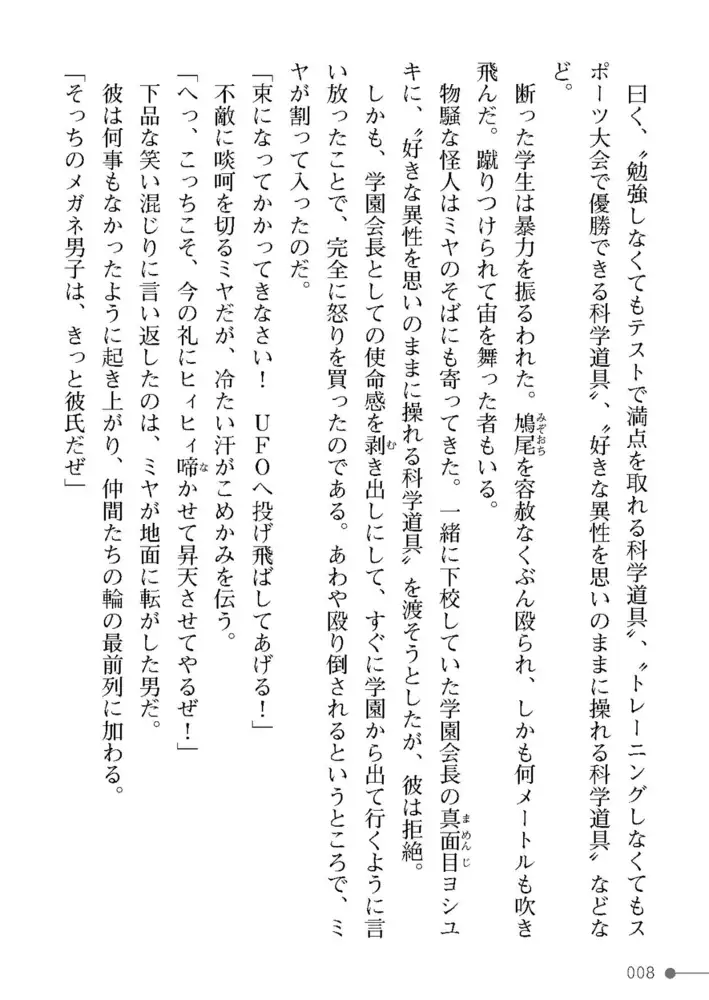 曰く、〝勉強しなくてもテストで満点を取れる科学道具〟、〝トレーニングしなくてもス
ポーツ大会で優勝できる科学道具〟、〝好きな異性を思いのままに操れる科学道具〟などな
ど。
断った学生は暴力を振るわれた。鳩尾を容赦なくぶん殴られ、しかも何メートルも吹き
飛んだ。蹴りつけられて宙を舞った者もいる。
物騒な怪人はミヤのそばにも寄ってきた。一緒に下校していた学園会長の真面目ヨシユ
キに、〝好きな異性を思いのままに操れる科学道具〟を渡そうとしたが、彼は拒絶。
しかも、学園会長としての使命感を剥き出しにして、すぐに学園から出て行くように言
い放ったことで、完全に怒りを買ったのである。あわや殴り倒されるというところで、ミ
ヤが割って入ったのだ。
「束になってかかってきなさい！　ＵＦＯへ投げ飛ばしてあげる！」
不敵に啖呵を切るミヤだが、冷たい汗がこめかみを伝う。
「へっ、こっちこそ、今の礼にヒィヒィ啼かせて昇天させてやるぜ！」
下品な笑い混じりに言い返したのは、ミヤが地面に転がした男だ。
彼は何事もなかったように起き上がり、仲間たちの輪の最前列に加わる。
「そっちのメガネ男子は、きっと彼氏だぜ」
みぞおち
ま めん じ
む
な
008